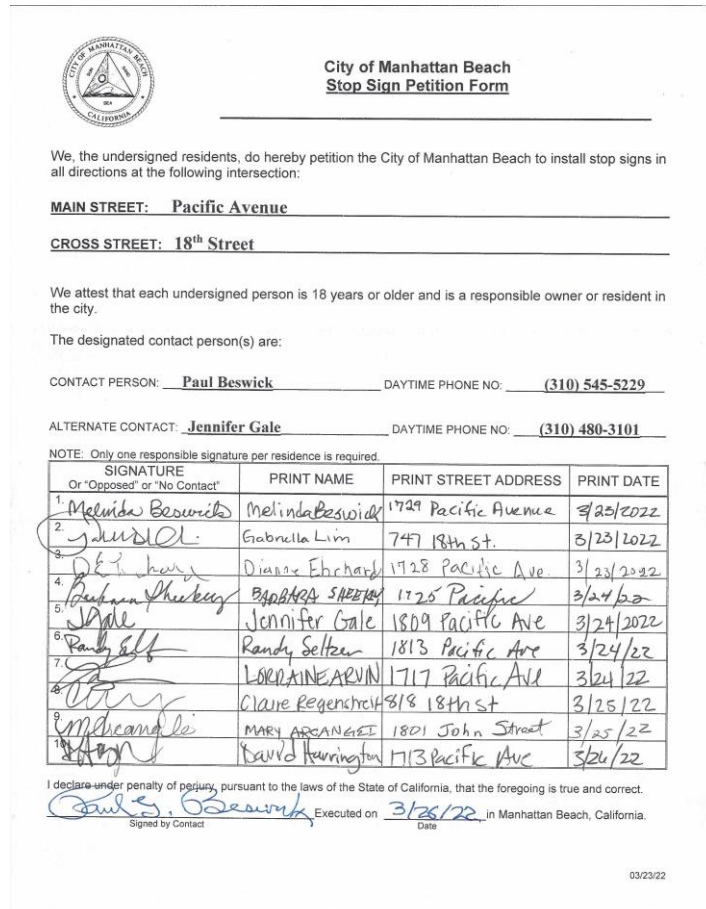 CITY OF MANHATTAN BEACH
SUN SAND
SEA
CALIFORNIA
City of Manhattan Beach
Stop Sign Petition Form
We, the undersigned residents, do hereby petition the City of Manhattan Beach to install stop signs in
all directions at the following intersection:
MAIN STREET: Pacific Avenue
CROSS STREET: 18th Street
We attest that each undersigned person is 18 years or older and is a responsible owner or resident in
the city.
The designated contact person(s) are:
CONTACT PERSON: Paul Beswick DAYTIME PHONE NO: (310) 545-5229
ALTERNATE CONTACT: Jennifer Gale DAYTIME PHONE NO: (310) 480-3101
NOTE: Only one responsible signature per residence is required.
SIGNATURE PRINT NAME PRINT STREET ADDRESS PRINT DATE
Or "Opposed" or "No Contact"
1. Melinda Beswick Melinda Beswick 1729 Pacific Avenue 3/23/2022
2. Gabriella Lim 747 18th St. 3/23/2022
3. Dianne 1728 Pacific Ave. 3/23/2022
4. BARBARA 1725 Pacific 3/24/22
5. JGale Jennifer Gale 1809 Pacific Ave 3/24/2022
6. Randy Randy Seltzer 1813 Pacific Ave 3/24/22
7. LORRAINE ARVIN 1717 Pacific Ave 3/24/22
8. Claire 818 18th St 3/25/22
9. MARY ARCANGEL 1801 John Street 3/25/22
10. David Harrington 1713 Pacific Ave 3/26/22
I declare under penalty of perjury, pursuant to the laws of the State of California, that the foregoing is true and correct.
Paul G. Beswick Executed on 3/26/22 in Manhattan Beach, California.
Signed by Contact Date
03/23/22